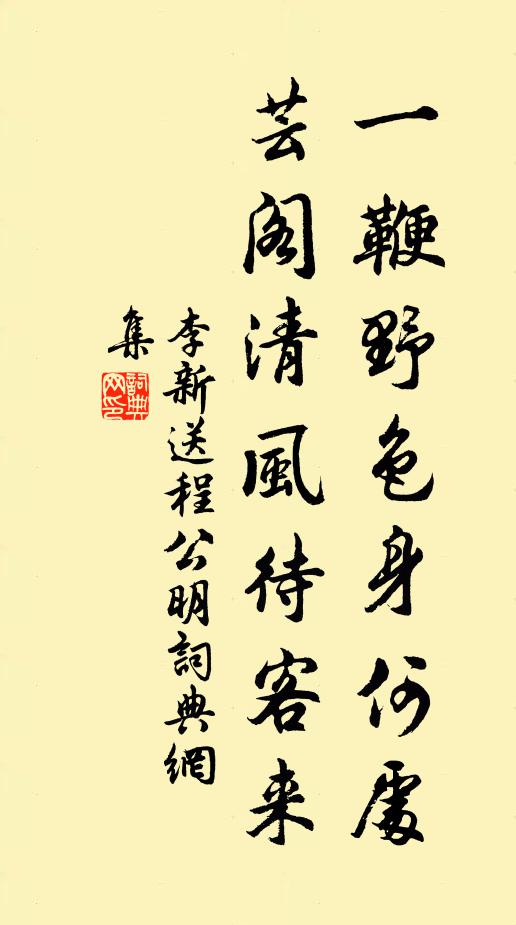 一鞭野色身何處
芸阁清風待客来
李新送程公明詞典網
集
詞典网印